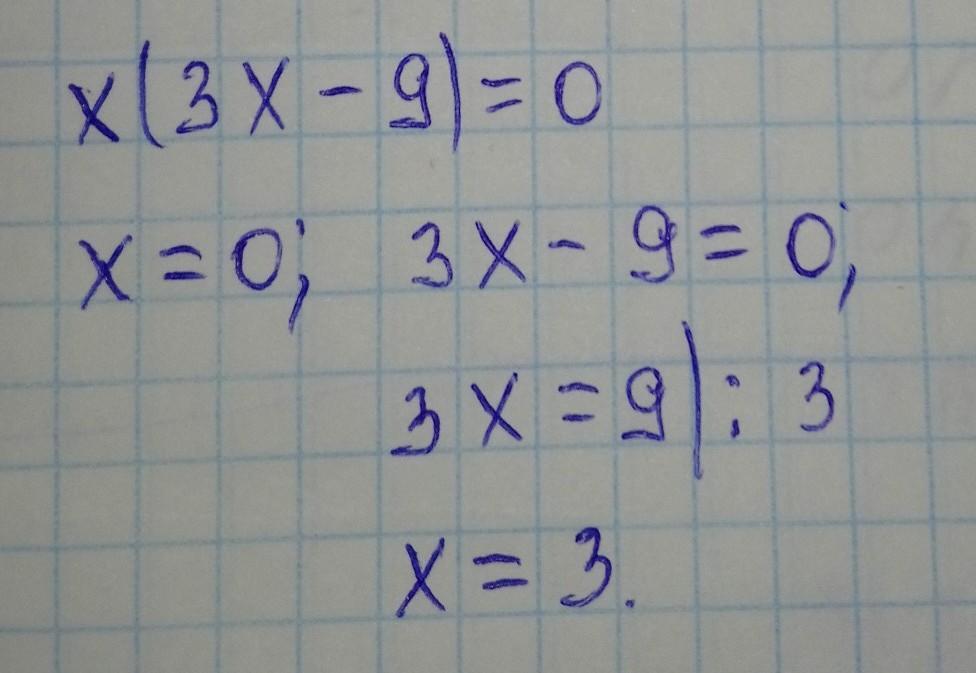 x(3x - 9) = 0
x = 0; 3x - 9 = 0;
3x = 9 | : 3
x = 3.